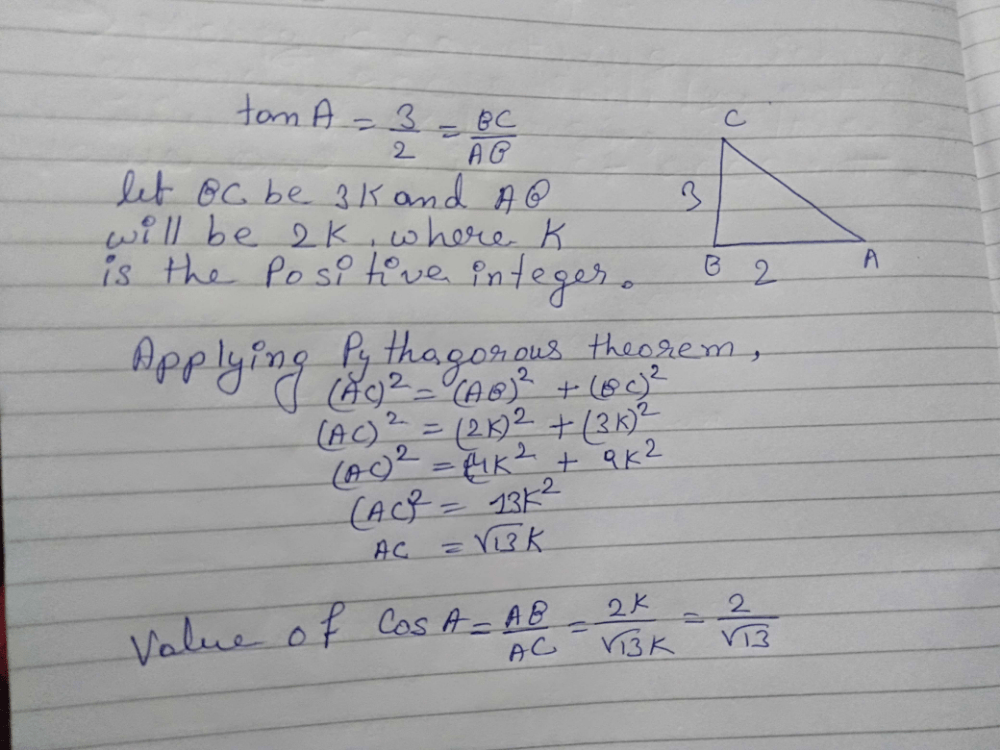 tan A = 3/2 = BC/AB
let BC be 3K and AB
will be 2K, where K
is the Positive integer.
C
3
B 2 A
Applying Pythagorous theorem,
(AC)² = (AB)² + (BC)²
(AC)² = (2K)² + (3K)²
(AC)² = 4K² + 9K²
(AC)² = 13K²
AC = √13 K
Value of Cos A = AB/AC = 2K/√13 K = 2/√13